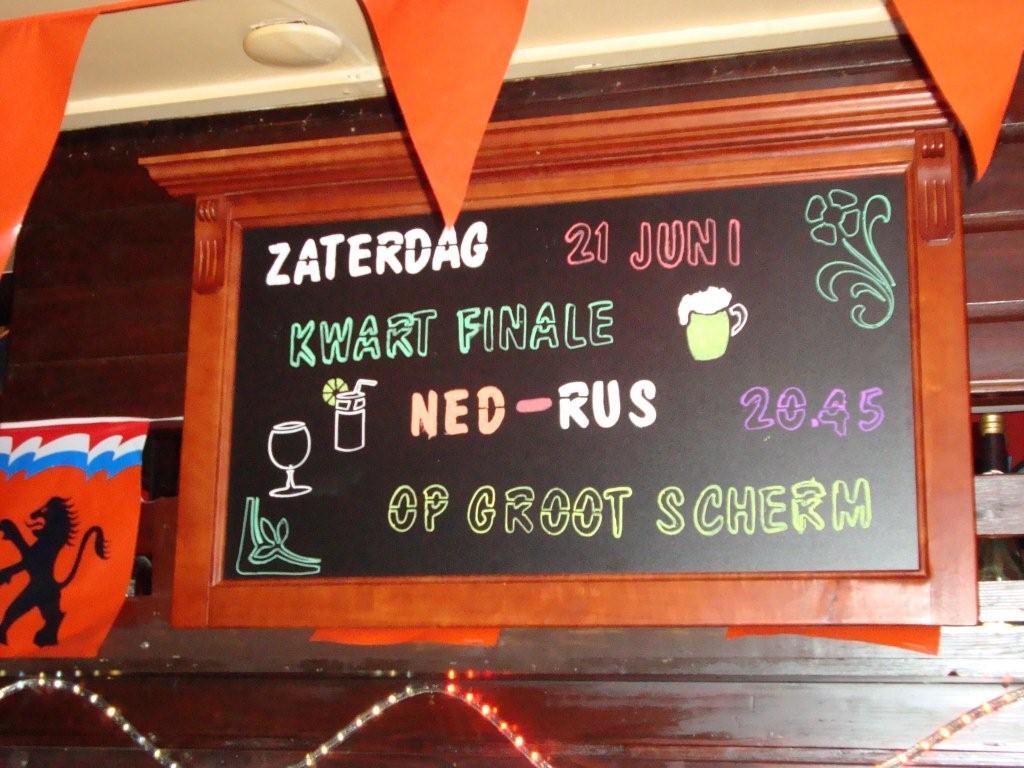 ZATERDAG 21 JUNI
KWART FINALE
NED-RUS 20.45
OP GROOT SCHERM